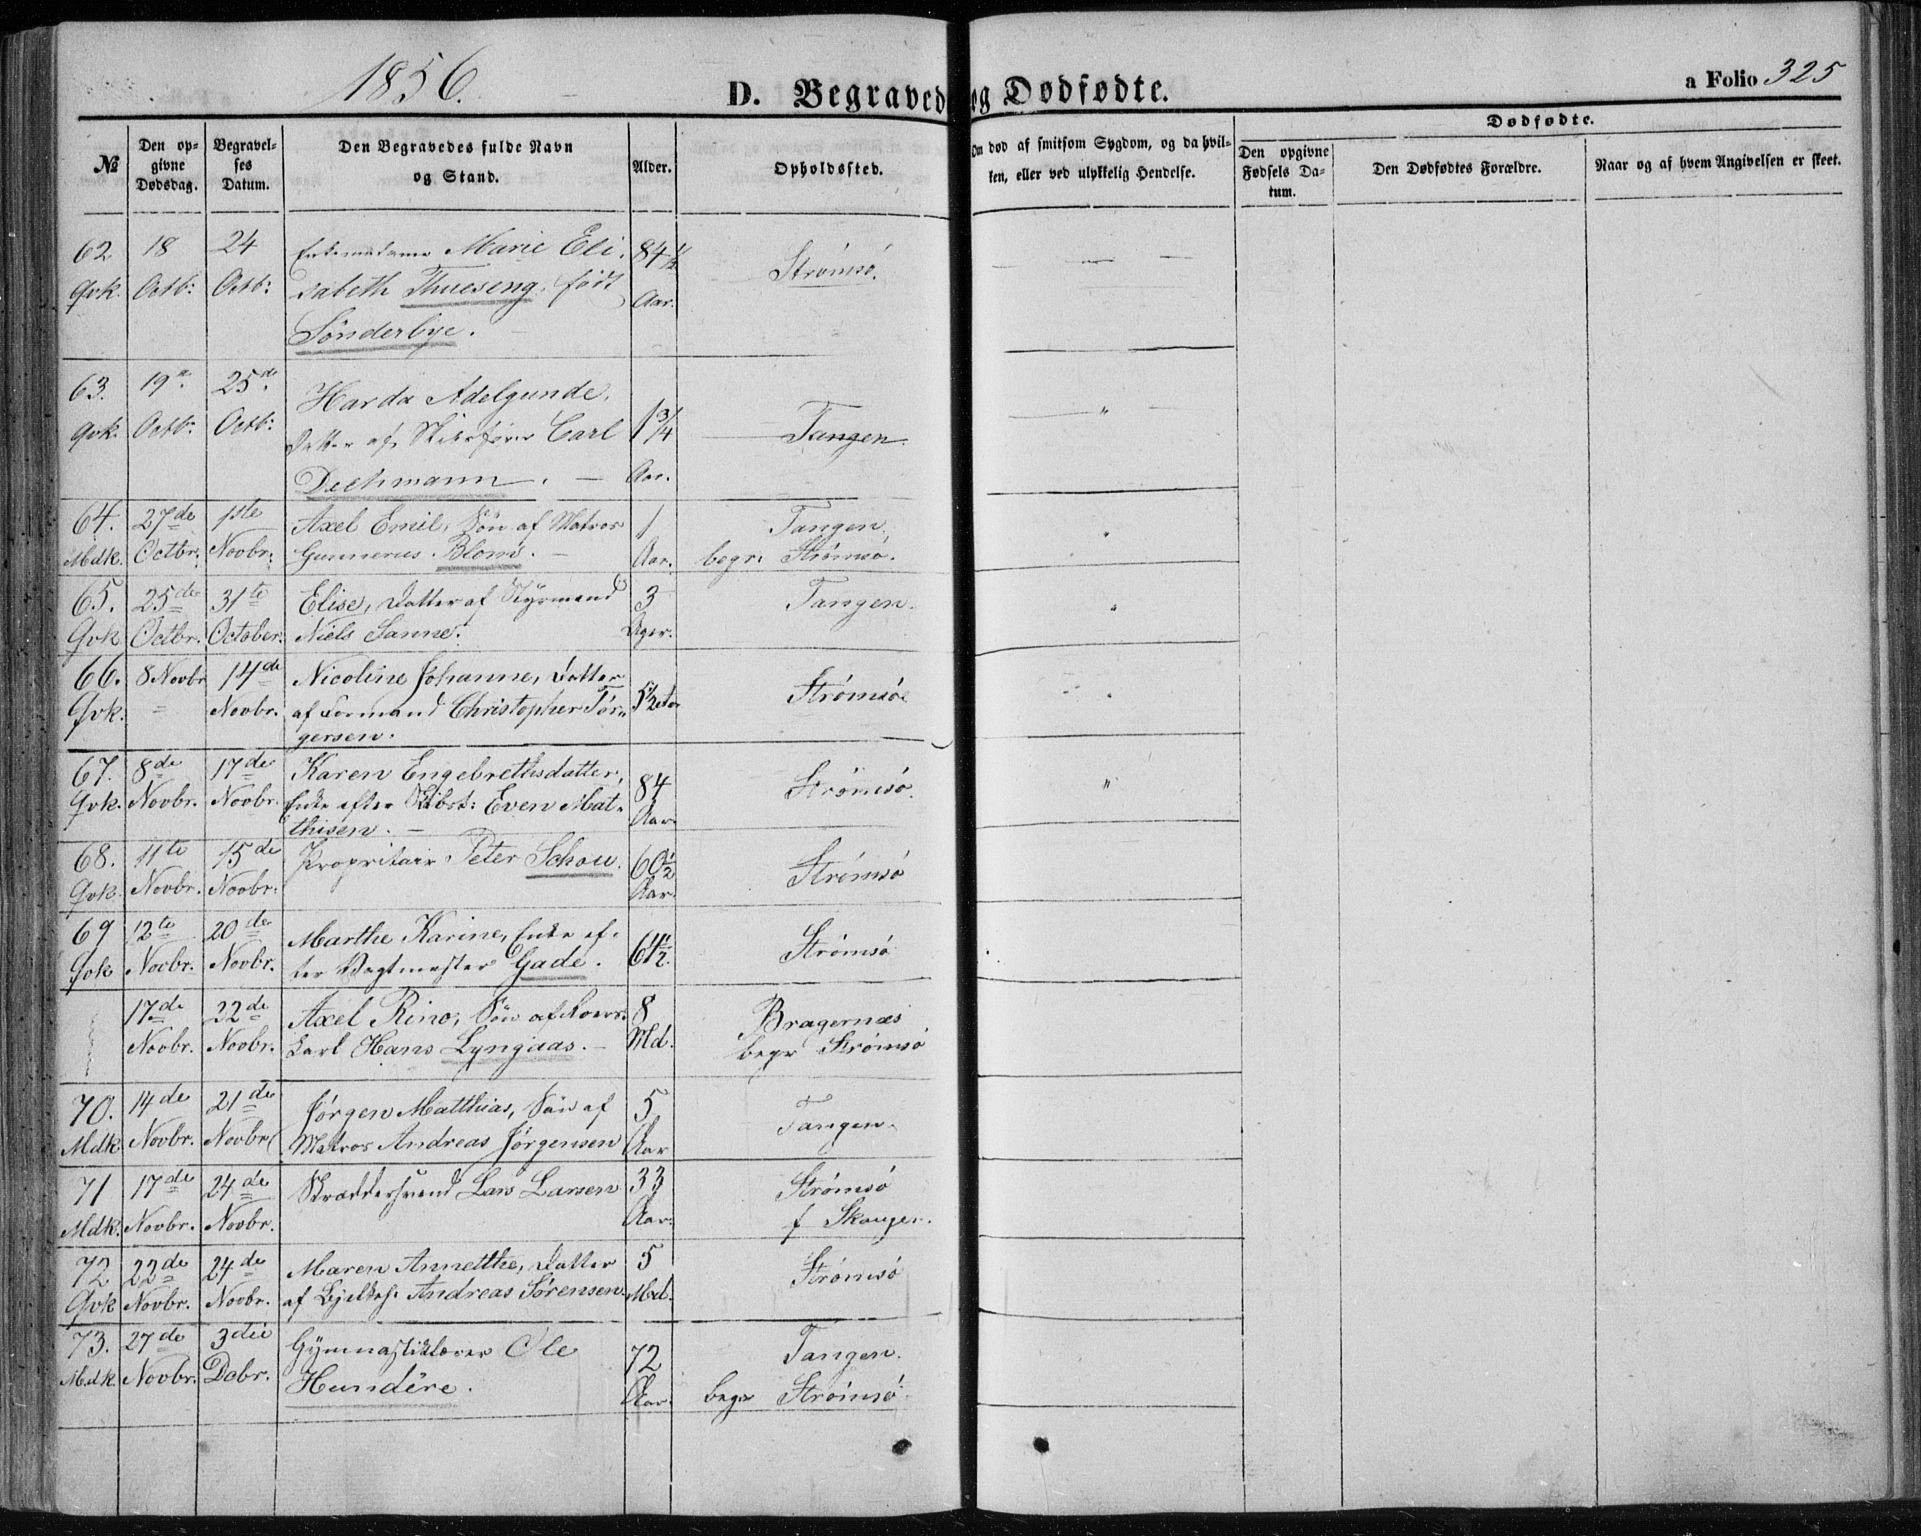 1856.
D. Begravede og Dødfødte.
a Folio 325
№
Den opgivne Dødsdag.
Begravelses Datum.
Den Begravedes fulde Navn og Stand.
Alder.
Opholdssted.
Om død af smitsom Sygdom, og da hvilken, eller ved ulykkelig Hendelse.
Dødfødte.
Den opgivne Fødsels Datum.
Den Dødfødtes Forældre.
Naar og af hvem Angivelsen er skeet.
62 18 24 Enkemadame Marie Eli- 84 ½ Strømsö.
Qvk. Octb: Octb: sabeth Thueseng, født Aar.
Sönderbye.
63. 19de 25de Harda Adelgunde,
Qvk. Octb: Octb: Datter af Skibsfører Carl 1¾ Tangen.
Dechmann. Aar.
64. 27de 1ste Axel Emil, Sön af Matros 1 Tangen,
Mdk. Octbr. Novbr. Gunnerus Blom. Aar. begr. Strömsö.
65. 25de 31te Elise, Datter af Styrmand 3 Tangen.
Qvk. Octbr. October. Niels Sanne. Uger.
66. 8 Novbr 14de Nicoline Johanne, Datter
Qvk. Novbr. af Formand Christopher Tör- 5½ Strömsöe
gersen.
67. 8de 17de Karen Engebrethsdatter, 84 Strömsö.
Qvk. Novbr. Novbr. Enke efter Skibst: Even Mat- Aar
thisen.
68. 11te 15de Propritair Peter Schou. 60½ Strömsö
Qvk. Novbr. Novbr. Aar.
69 12te 20de Marthe Karine, Enke ef- 64½. Strömsö
Qvk Novbr. Novbr. ter Vagtmester Gade.
17de 22de Axel Rino, Sön af 8 Bragernæs
Novbr. Novbr. karl Hans Lyngaas. Md. begr Strömsö
70. 14de 21de Jörgen Matthias, Sön af 5 Tangen.
Mdk. Novbr. Novbr. Matros Andreas Jörgensen Aar
71 17de 24de Skræddersvend Lars Larsen 33 Strömsö
Mdk. Novbr. Novbr. Aar. f Skouger.
72 22de 24de Maren Annetthe, Datter 5 Strömsö
Qvk Novbr. Novbr. af Andreas Sörensen. Md.
73. 27de 3die Gymnastiklærer Ole 72 Tangen.
Mdk. Novbr. Decbr. Hundére. Aar. begr Strömsö.